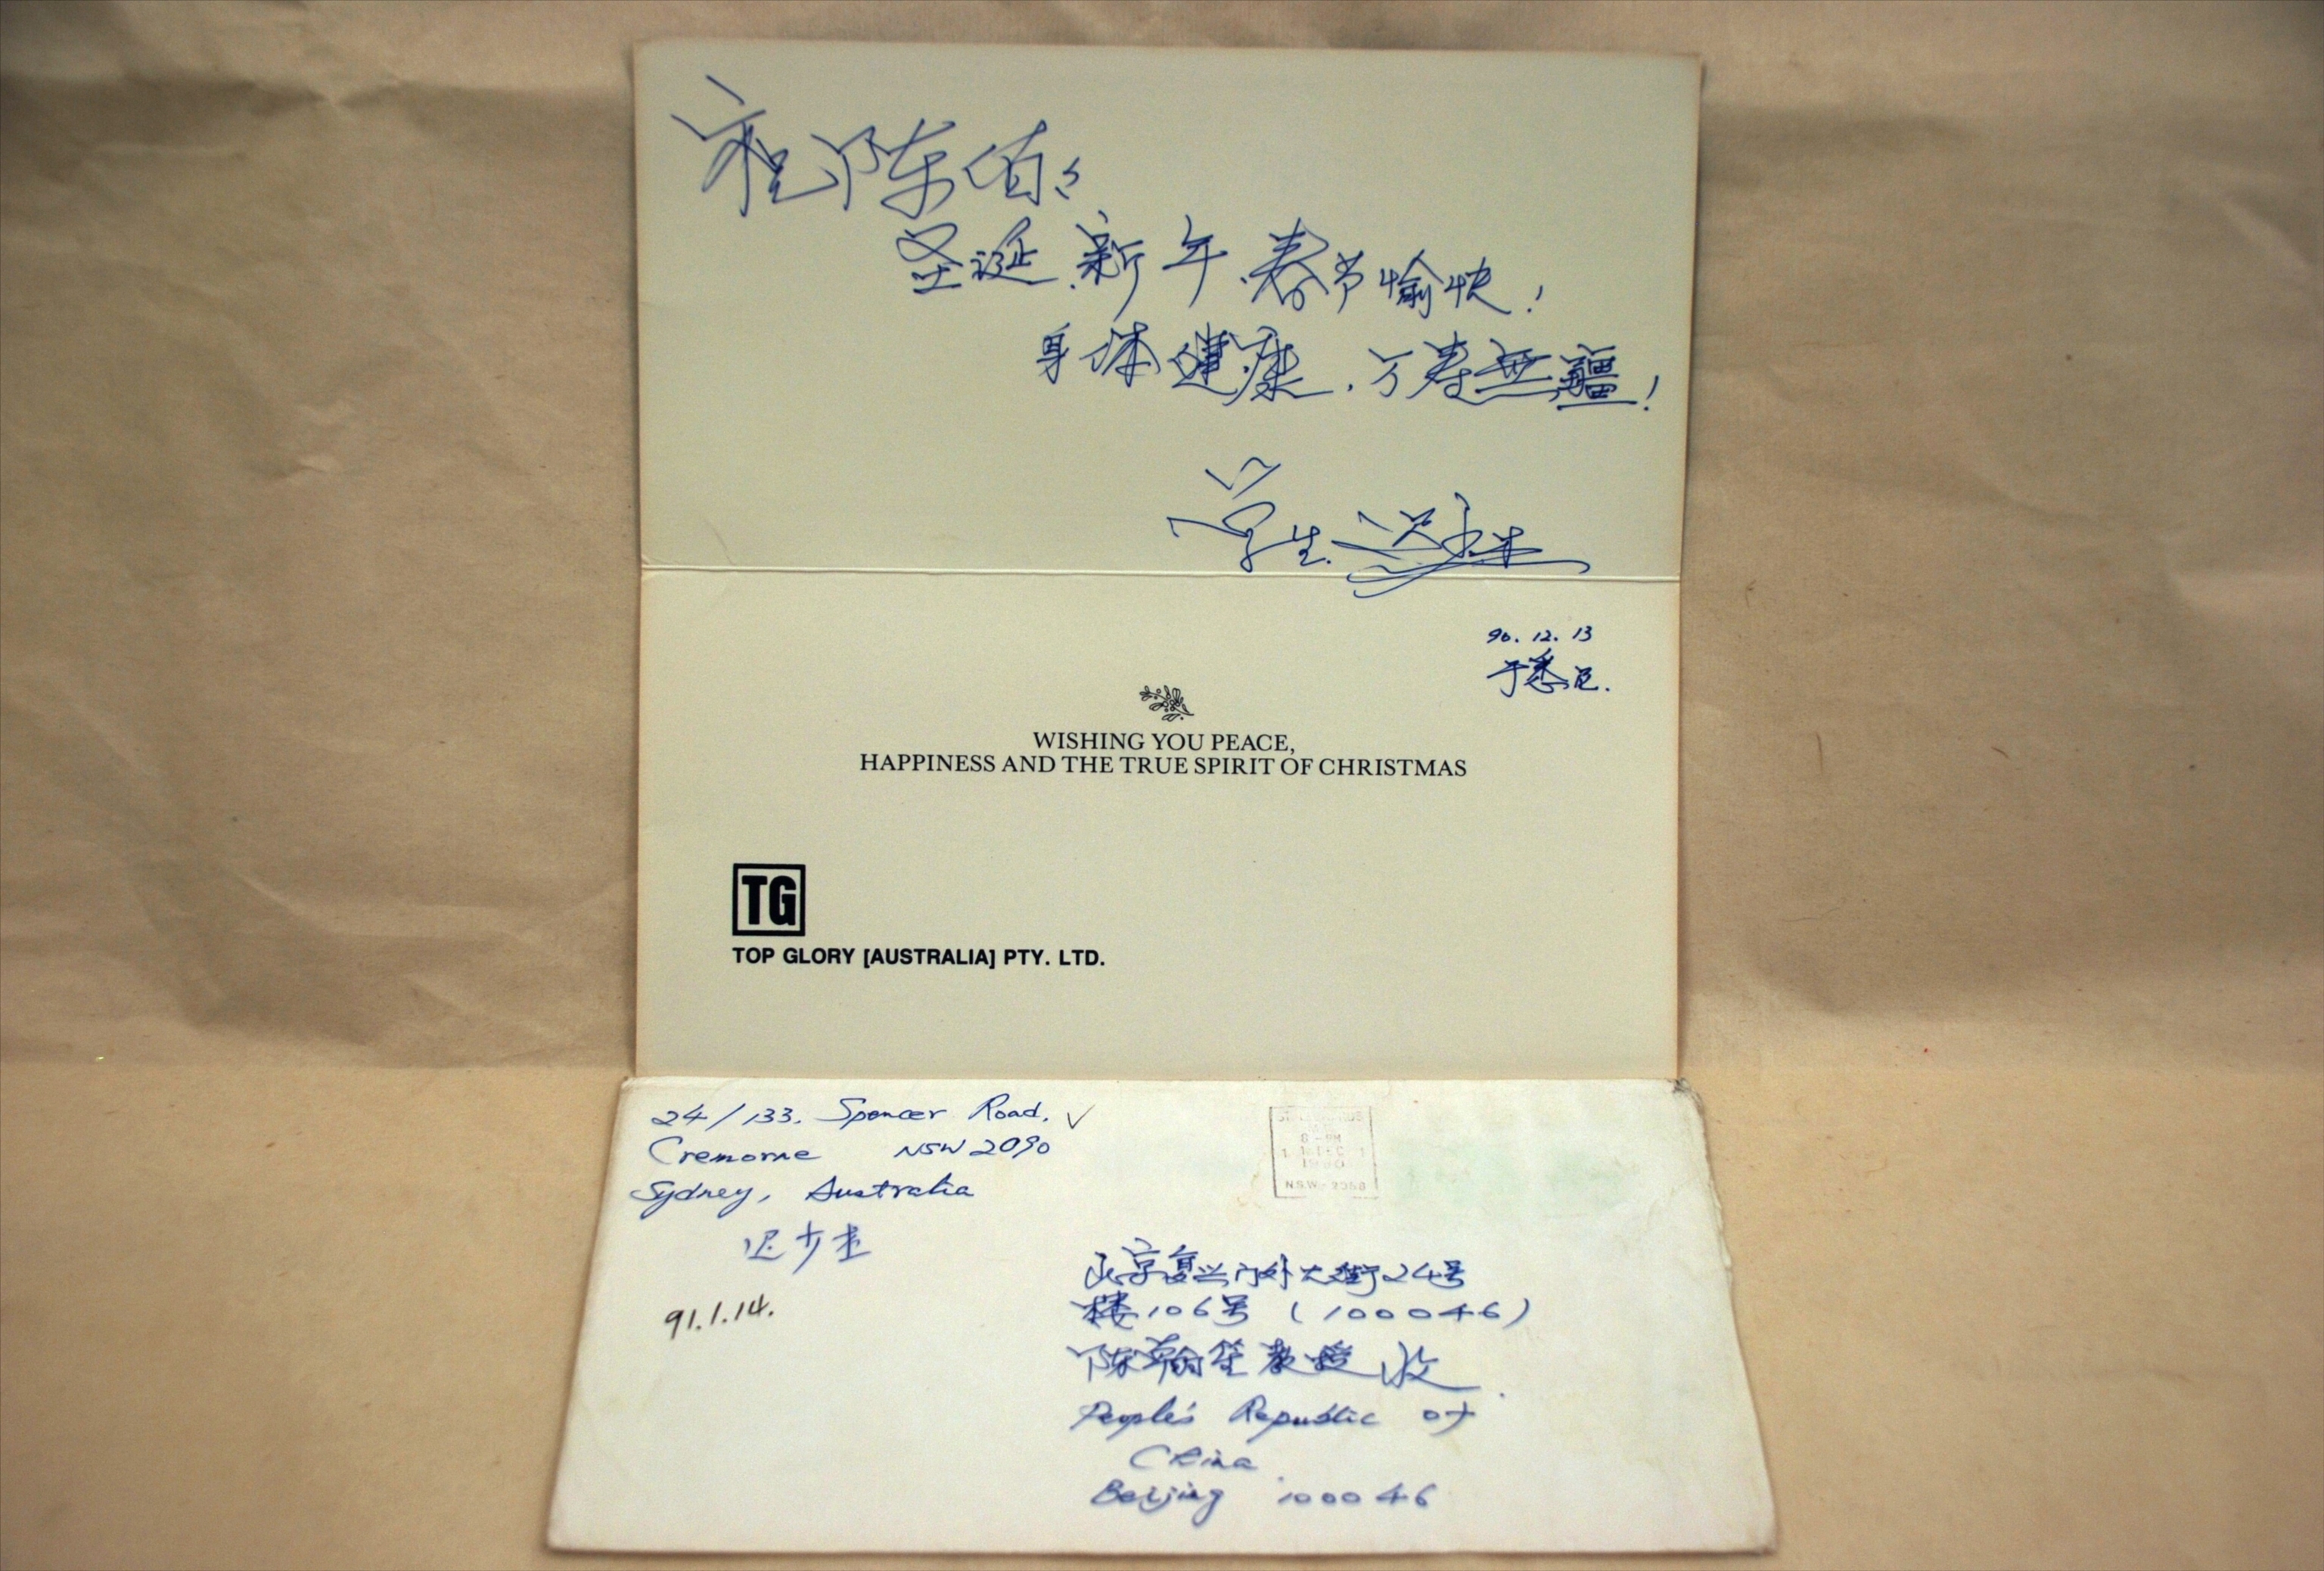 祝陈伯伯
圣诞、新年、春节愉快!
身体健康、万寿无疆!
学生
90.12.13
于悉尼.
WISHING YOU PEACE,
HAPPINESS AND THE TRUE SPIRIT OF CHRISTMAS
TG
TOP GLORY [AUSTRALIA] PTY. LTD.
24/133. Spencer Road,
Cremorne NSW 2090
Sydney, Australia
91.1.14.
N.S.W.
北京复兴门外大街24号
楼106号 (100046)
陈翰笙教授 收
People's Republic of
China
Beijing 100046